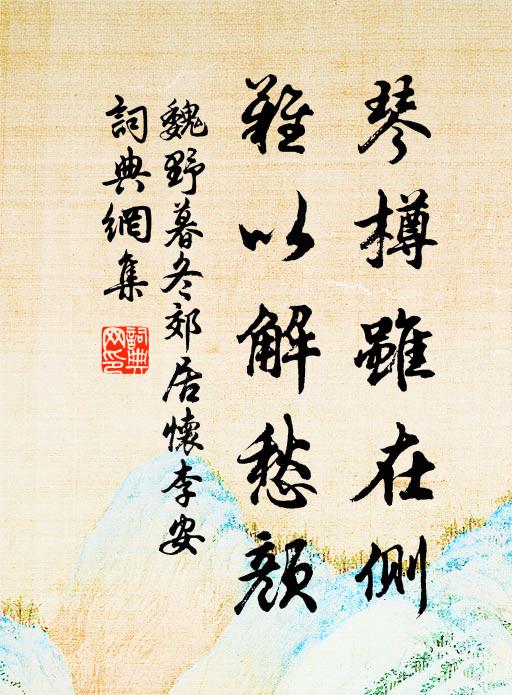 琴樽雖在側
難以解愁顔
魏野暮冬郊居懷李安
詞典網集
詞典網印